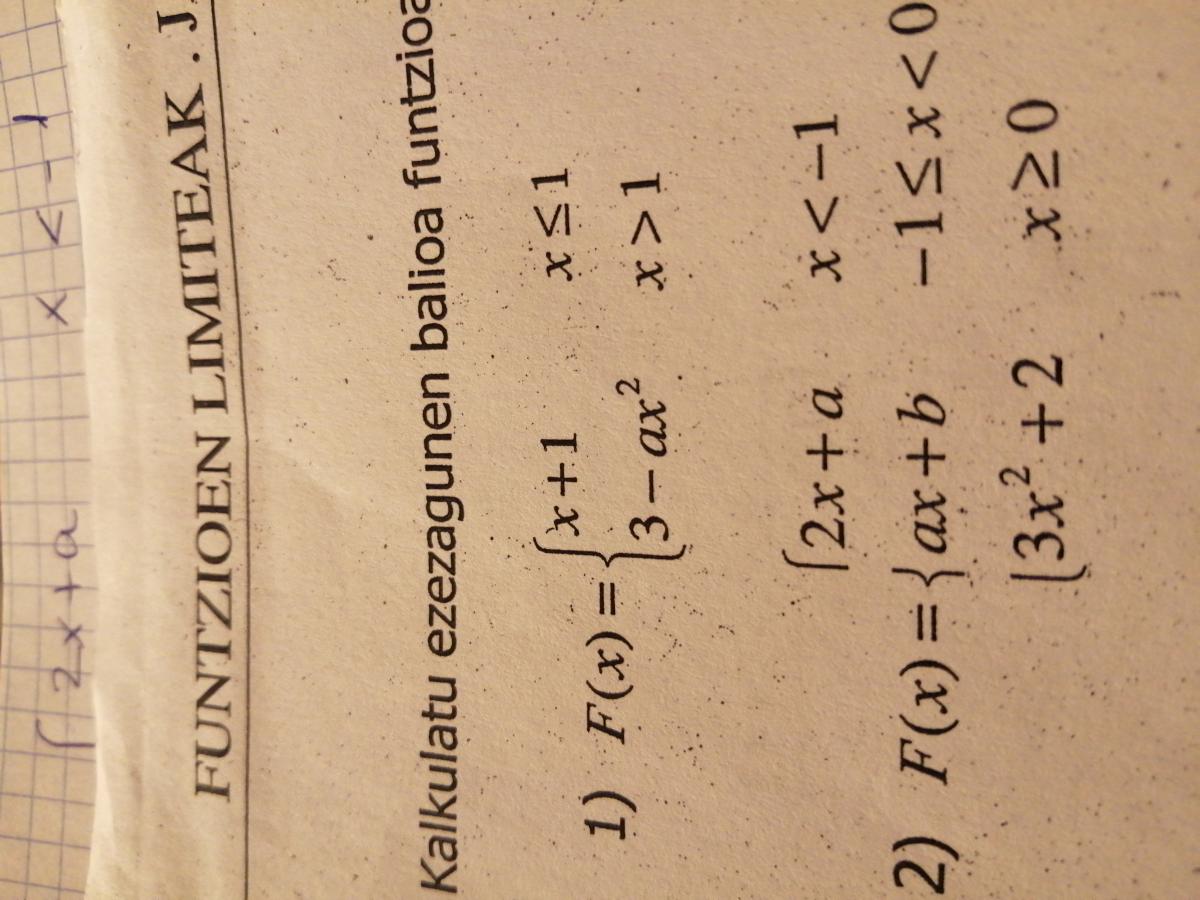 { 2x + a x < -1
FUNTZIOEN LIMITEAK . J
Kalkulatu ezezagunen balioa
1) F(x) = { x+1 x ≤ 1
3 − ax² x > 1
2) F(x) = { 2x + a x < −1
ax + b −1 ≤ x < 0
3x² + 2 x ≥ 0